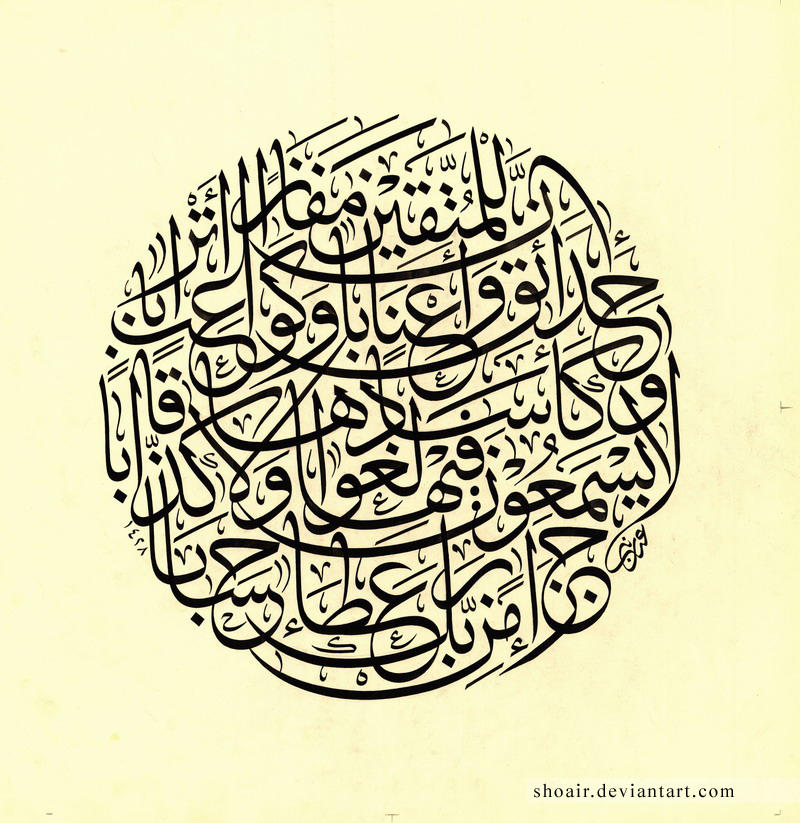 إِنَّ لِلْمُتَّقِينَ مَفَازًا
حَدَائِقَ وَأَعْنَابًا وَكَوَاعِبَ أَتْرَابًا
وَكَأْسًا دِهَاقًا
لَا يَسْمَعُونَ فِيهَا لَغْوًا وَلَا كِذَّابًا
جَزَاءً مِنْ رَبِّكَ عَطَاءً حِسَابًا
١٤٢٨
shoair.deviantart.com